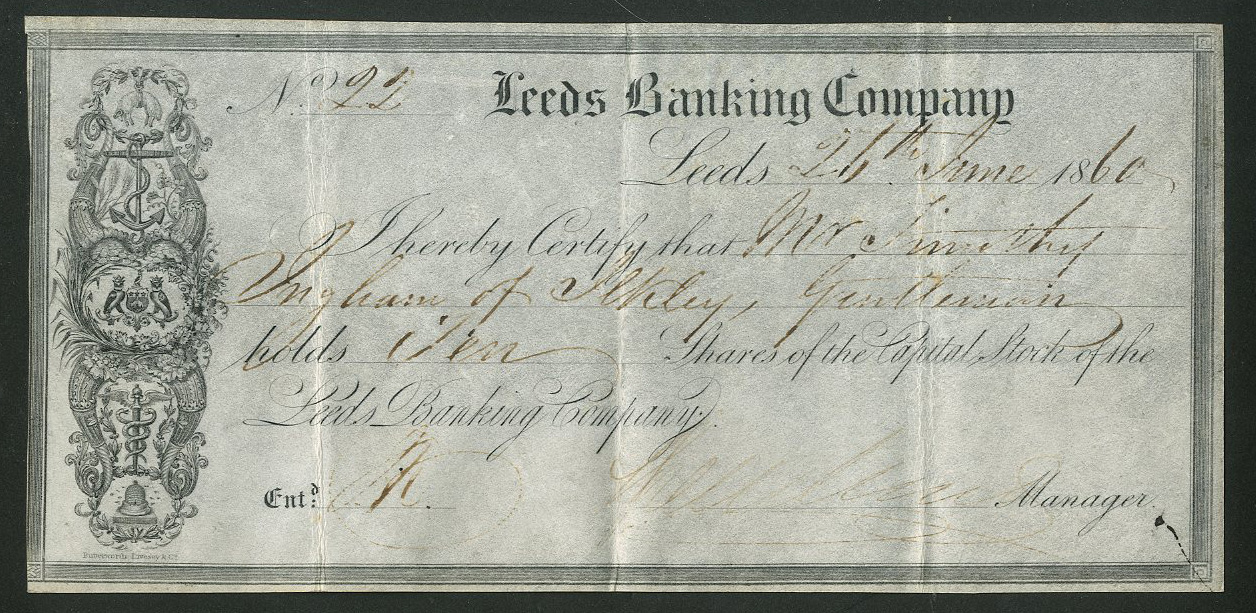 No. 22 Leeds Banking Company
Leeds 26th June 1860
I hereby Certify that Mr Timothy
Ingham of Ilkley, Gentleman
holds Ten Shares of the Capital Stock of the
Leeds Banking Company.
Entd. Manager.
Butterworth Livesey & Co.